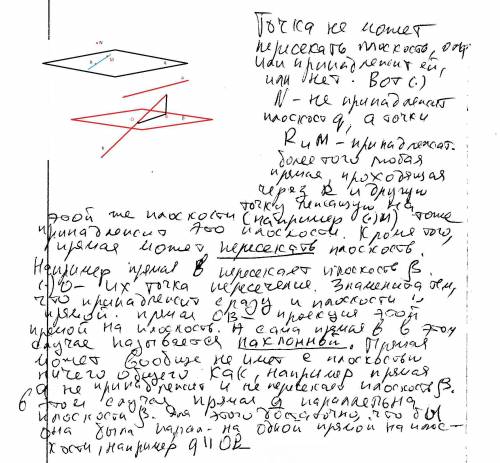 N
R
M
a
a
O
B
β
в
Точка не может
пересекать плоскость, она
или принадлежит ей,
или нет. Вот (.)
N - не принадлежит
плоскост а, а точки
R и М - принадлежат.
более того любая
прямая, проходящая
через R и другую
точку лежащую на
этой же плоскости (например (.) М) тоже
принадлежит этой плоскости. Кроме того,
прямая может пересекать плоскость.
Например прямая в пересекает плоскость β.
(.) О - их точка пересечения. Знаменита тем,
что принадлежит сразу и плоскости и
прямой. прямая ОВ - проекция этой
прямой на плоскость. А сама прямая в в этом
случае называется наклонной. Прямая
может вообще не имет с плоскостью
ничего общего как, например прямая
а не принадлежит и не пересекает плоскость β.
в этом случае прямая а параллельна
плоскости β. Для этого достаточно, что бы
она была парал-на одной прямой на плос-
кости, например а || ОВ